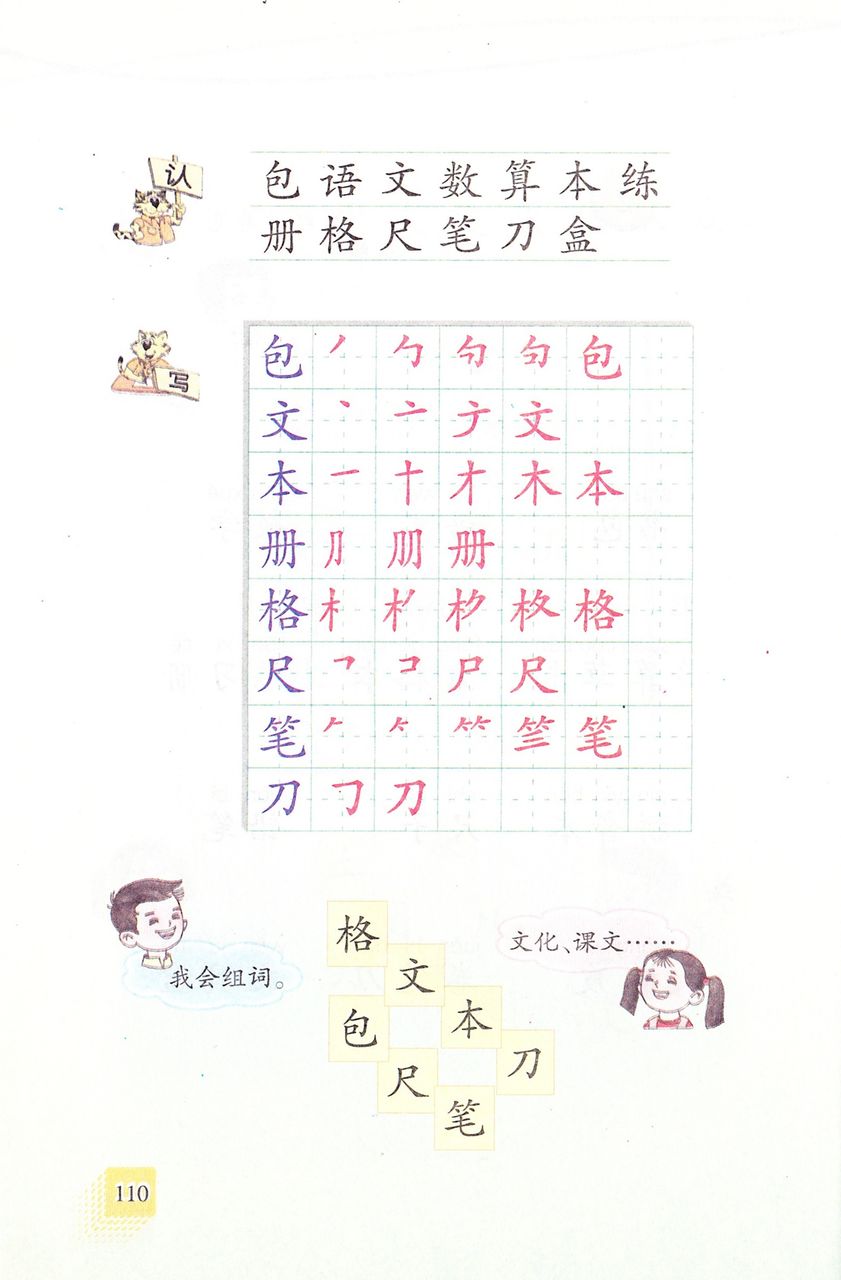 认
包语文数算本练
册格尺笔刀盒
写
包 丿 勹 勹 句 包
文 丶 亠 ナ 文
本 一 十 才 木 本
册 刂 册
格 木 格
尺 乛 コ 尸 尺
笔 𠂉 ⺮ 笔
刀 𠃌 刀
我会组词。
格
文
包
本
尺
刀
笔
文化、课文……
110